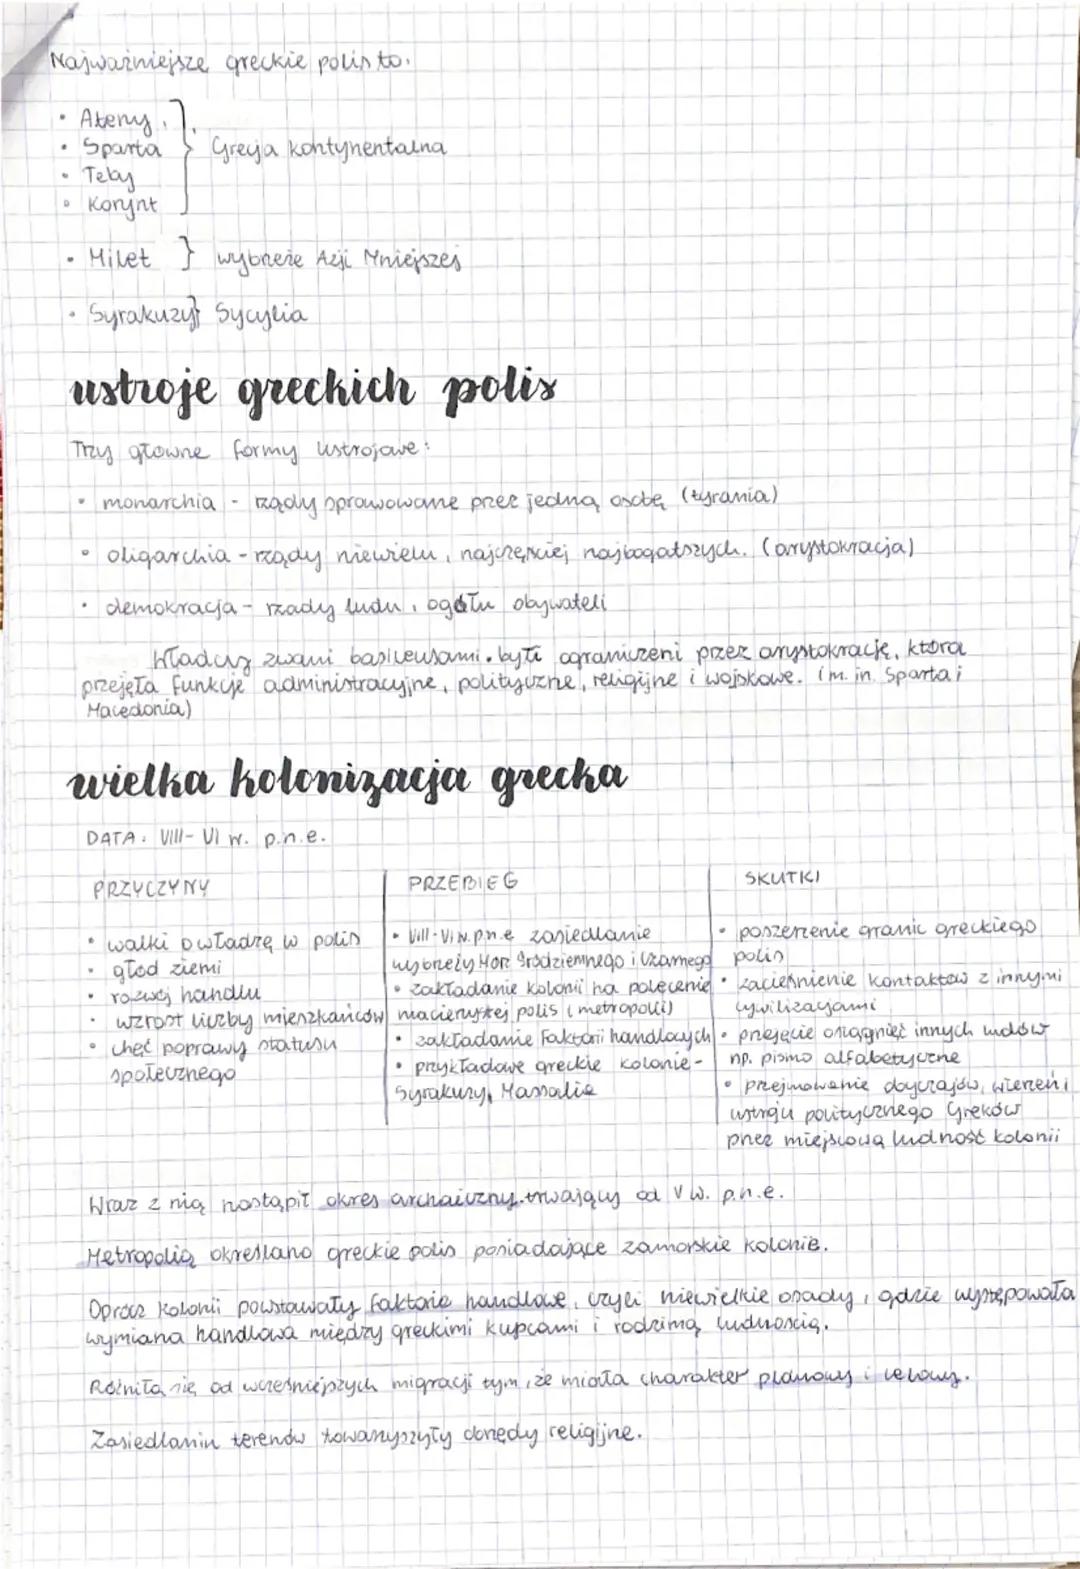 Najważniejsze greckie polis to:
• Ateny
• Sparta } Grecja kontynentalna
• Teby
• Korynt
• Milet } wybrzeże Azji Mniejszej
• Syrakuzy } Sycylia
ustroje greckich polis
Trzy główne formy ustrojowe:
• monarchia - rządy sprawowane przez jedną osobę (tyrania)
• oligarchia - rządy niewielu, najczęściej najbogatszych. (arystokracja)
• demokracja - rządy ludu, ogółu obywateli
Władcy zwani basileusami. byli ograniczeni przez arystokrację, która
przejęła funkcje administracyjne, polityczne, religijne i wojskowe. (m. in. Sparta i
Macedonia)
wielka kolonizacja grecka
DATA: VIII-VI w. p.n.e.
PRZYCZYNY
• walki o władzę w polis
• głód ziemi
• rozwój handlu
• wzrost liczby mieszkańców
• chęć poprawy statusu
społecznego
PRZEBIEG
• VIII-VI w. p.n.e zasiedlanie
wybrzeży Mórz Śródziemnego i Czarnego
• zakładanie kolonii na polecenie
macierzystej polis (metropolii)
• zakładanie faktorii handlowych
• przykładowe greckie kolonie -
Syrakuzy, Massalia
SKUTKI
• poszerzenie granic greckiego
polis
• zacieśnienie kontaktów z innymi
cywilizacjami
• przejęcie osiągnięć innych ludów
np. pismo alfabetyczne
• przejmowanie obyczajów, wierzeń i
ustroju politycznego Greków
przez miejscową ludność kolonii
Wraz z nią nastąpił okres archaiczny trwający od V w. p.n.e.
Metropolią określano greckie polis posiadające zamorskie kolonie.
Oprócz kolonii powstawały faktorie handlowe, czyli niewielkie osady, gdzie występowała
wymiana handlowa między greckimi kupcami i rodzimą ludnością.
Różniła się od wcześniejszych migracji tym, że miała charakter planowy i celowy.
Zasiedlaniu terenów towarzyszyły obrzędy religijne.